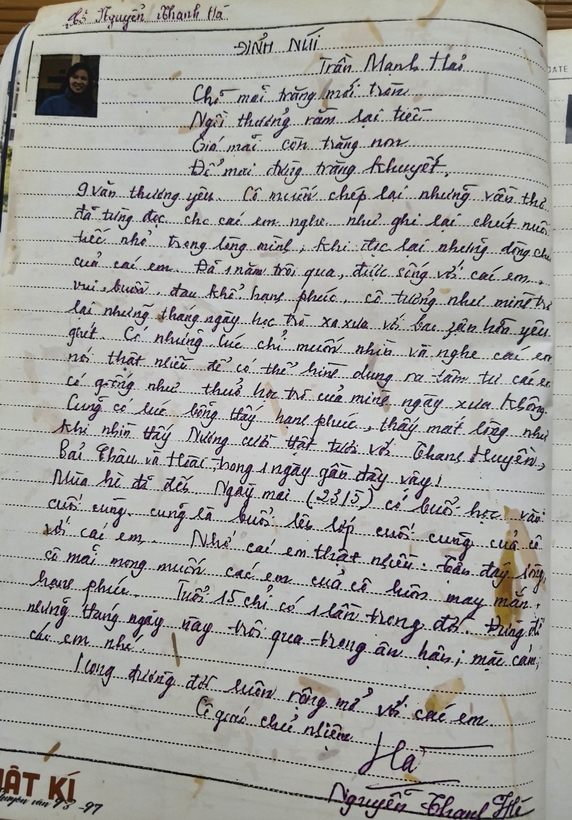 Nguyễn Thanh Hà
ĐỈNH NÚI
Trần Mạnh Hảo
Chỉ mai trăng mới tròn
Ngồi thương rằm lại tiếc
Giá mãi còn trăng non
Để mai đừng trăng khuyết.
9 văn thương yêu. Cô muốn chép lại những vần thơ
đã từng đọc cho các em nghe như ghi lại chút nuối
tiếc nhỏ trong lòng mình, khi đọc lại những dòng chữ
của các em. Đã 1 năm trôi qua, được sống với các em,
vui, buồn, đau khổ hạnh phúc, cô tưởng như mình trở
lại những tháng ngày học trò xa xưa với bao giận hờn yêu
ghét. Có những lúc chỉ muốn nhìn và nghe các em
nói thật nhiều để có thể hình dung ra tâm tư các em
có giống như thuở học trò của mình ngày xưa không.
Cũng có lúc bỗng thấy hạnh phúc, thấy mát lòng như
khi nhìn thấy Nương cười thật tươi với Thanh Huyền,
Bải Châu và Hoài trong 1 ngày gần đây vậy!
Mùa hè đã đến. Ngày mai (23/5) có buổi học văn
cuối cùng cũng là buổi lên lớp cuối cùng của cô
với các em. Nhớ các em thật nhiều. Tận đáy lòng,
cô mãi mong muốn các em của cô luôn may mắn,
hạnh phúc. Tuổi 15 chỉ có 1 lần trong đời. Đừng để
những tháng ngày này trôi qua trong ân hận, mặc cảm,
các em nhé.
Mong đường đời luôn rộng mở với các em
Cô giáo chủ nhiệm
Hà
Nguyễn Thanh Hà
NHẬT KÍ
chuyên văn 93-97
DATE